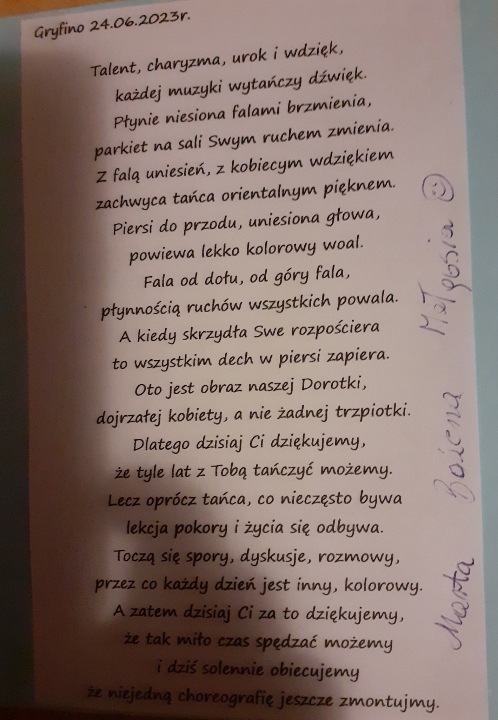 Gryfino 24.06.2023r.
Talent, charyzma, urok i wdzięk,
każdej muzyki wytańczy dźwięk.
Płynie niesiona falami brzmienia,
parkiet na sali Swym ruchem zmienia.
Z falą uniesień, z kobiecym wdziękiem
zachwyca tańca orientalnym pięknem.
Piersi do przodu, uniesiona głowa,
powiewa lekko kolorowy woal.
Fala od dołu, od góry fala,
płynnością ruchów wszystkich powala.
A kiedy skrzydła Swe rozpościera
to wszystkim dech w piersi zapiera.
Oto jest obraz naszej Dorotki,
dojrzałej kobiety, a nie żadnej trzpiotki.
Dlatego dzisiaj Ci dziękujemy,
że tyle lat z Tobą tańczyć możemy.
Lecz oprócz tańca, co nieczęsto bywa
lekcja pokory i życia się odbywa.
Toczą się spory, dyskusje, rozmowy,
przez co każdy dzień jest inny, kolorowy.
A zatem dzisiaj Ci za to dziękujemy,
że tak miło czas spędzać możemy
i dziś solennie obiecujemy
że niejedną choreografię jeszcze zmontujmy.
Marta Bożena Małgosia ☺